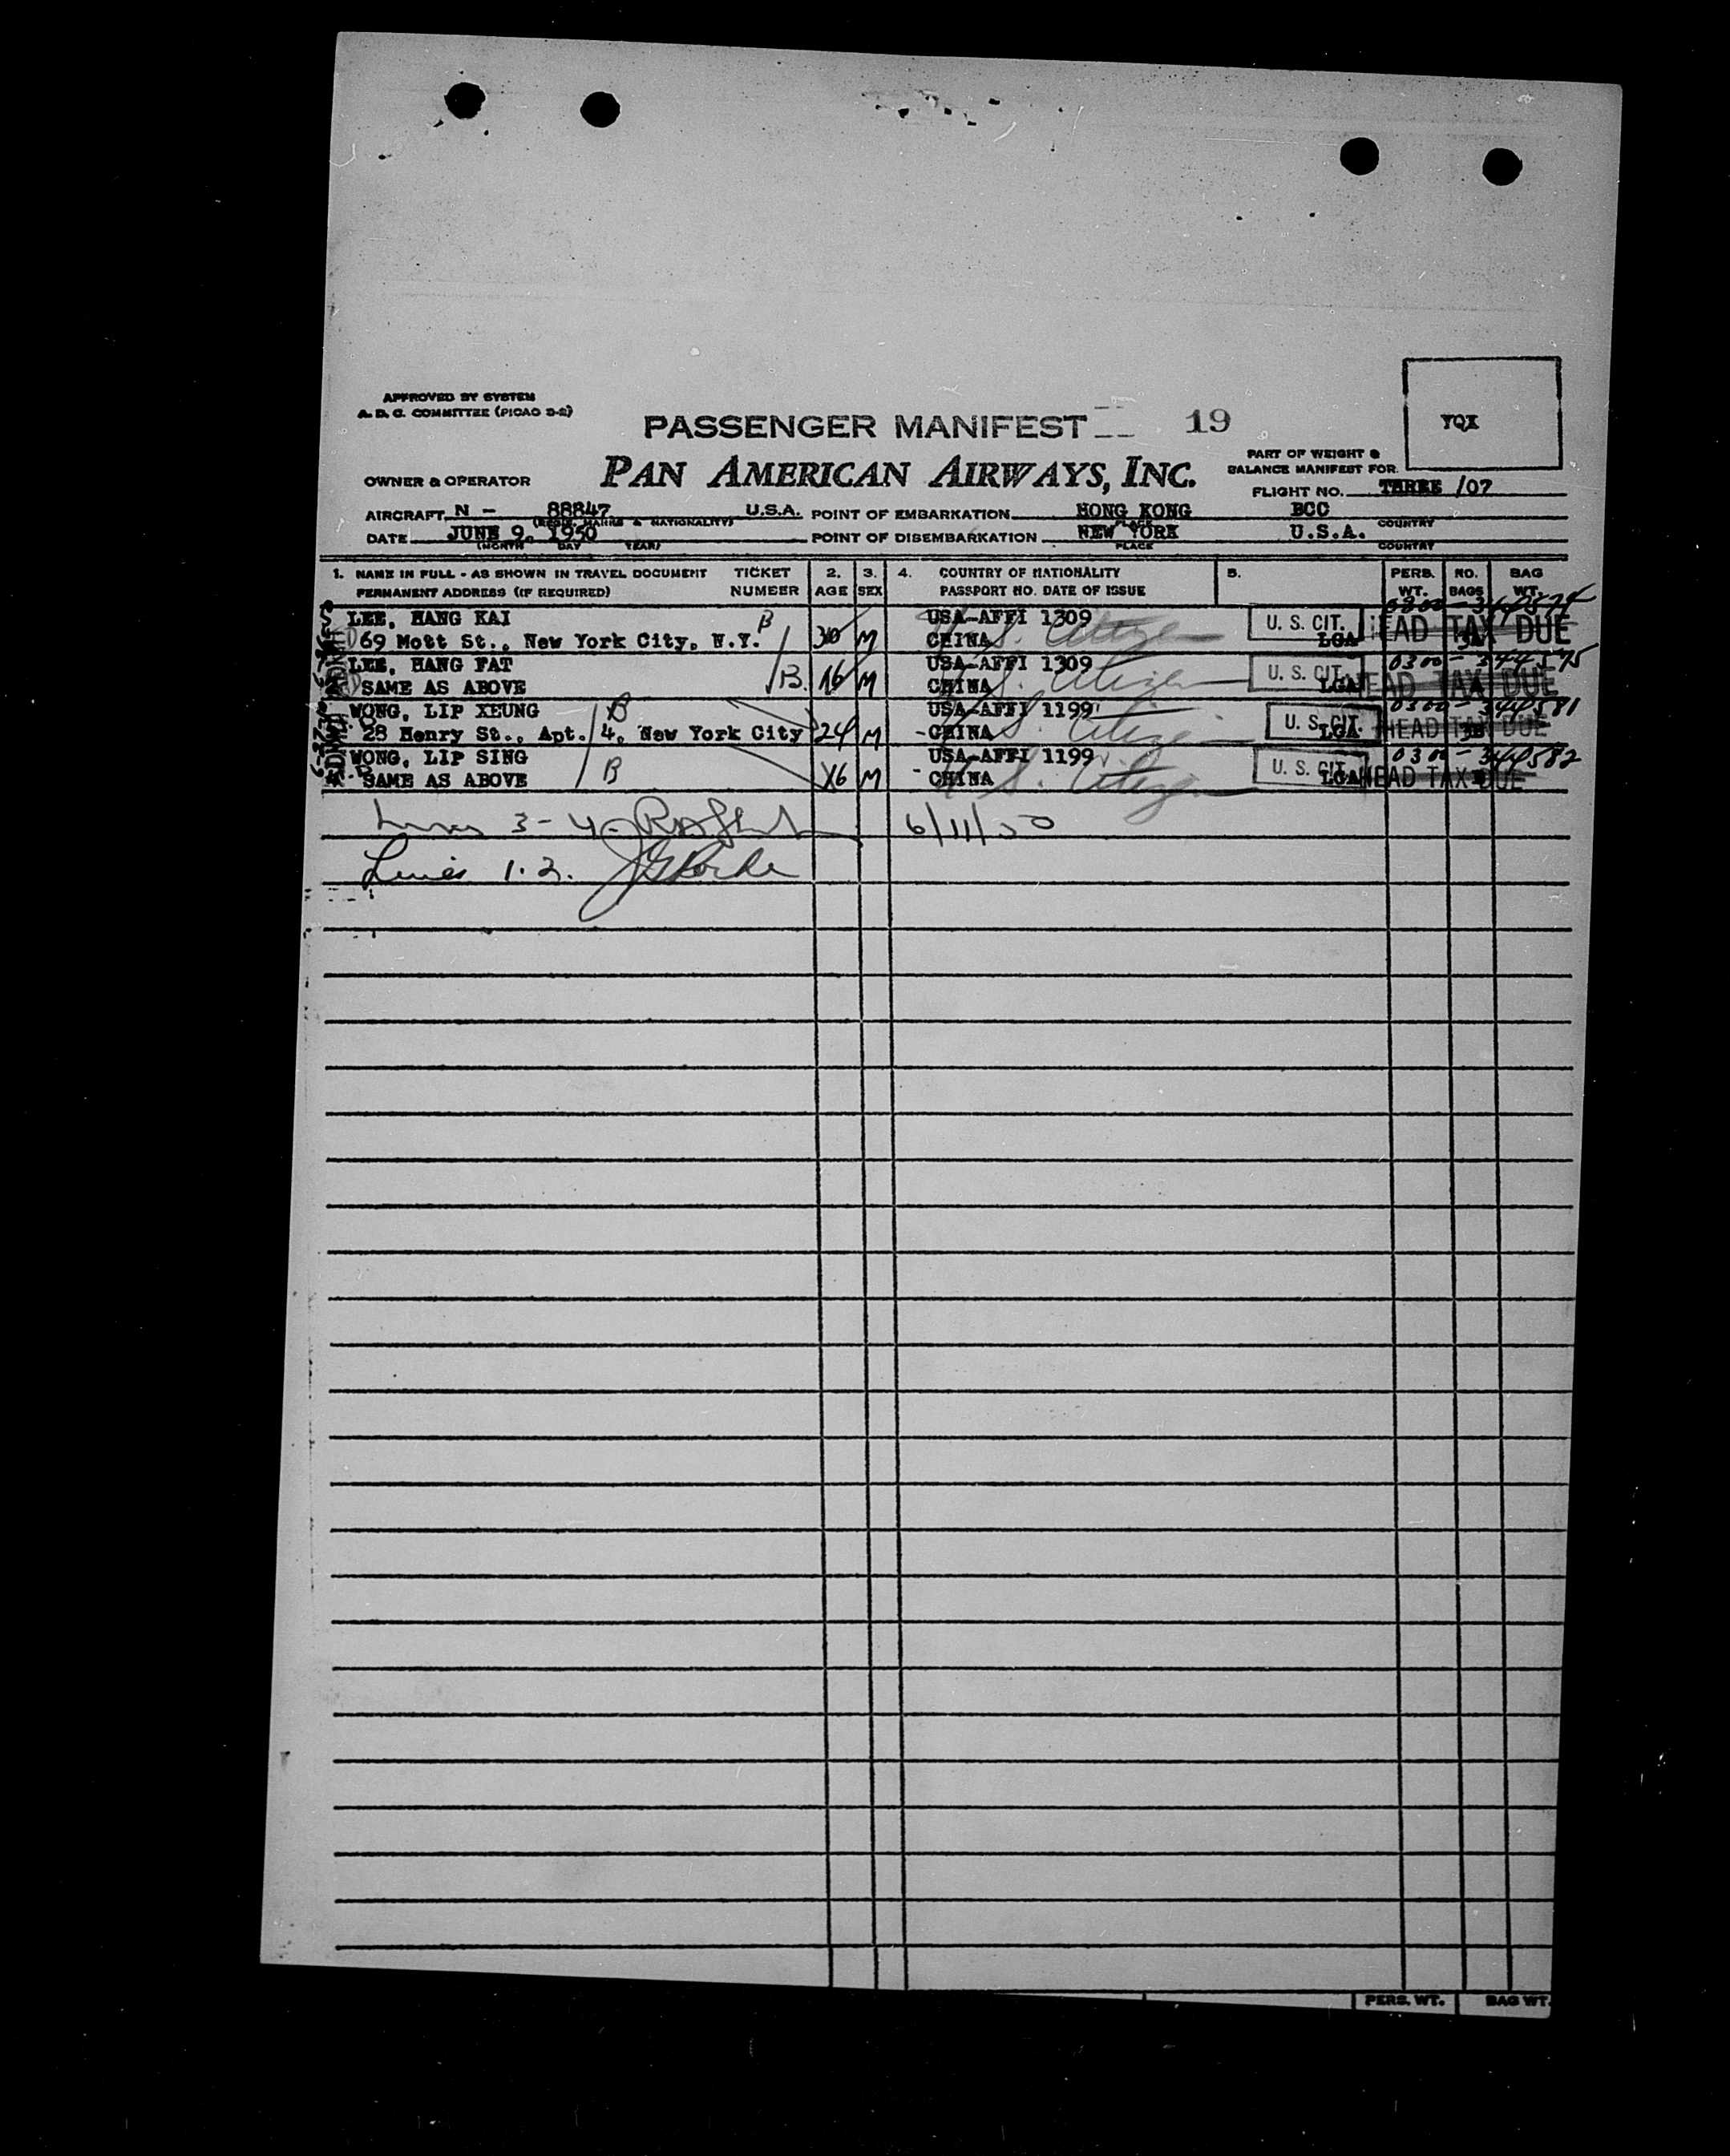 APPROVED BY SYSTEM
A. D. C. COMMITTEE (PICAO D-2)
PASSENGER MANIFEST 19
YQX
PAN AMERICAN AIRWAYS, INC.
PART OF WEIGHT &
BALANCE MANIFEST FOR
OWNER & OPERATOR
FLIGHT NO. THREE /07
AIRCRAFT N - 88847 U.S.A. POINT OF EMBARKATION HONG KONG BCC
(REGIS. MARKS & NATIONALITY) PLACE COUNTRY
DATE JUNE 9, 1950 POINT OF DISEMBARKATION NEW YORK U.S.A.
(MONTH DAY YEAR) PLACE COUNTRY
1. NAME IN FULL - AS SHOWN IN TRAVEL DOCUMENT TICKET 2. 3. 4. COUNTRY OF NATIONALITY 5. PERS. NO. BAG
PERMANENT ADDRESS (IF REQUIRED) NUMBER AGE SEX PASSPORT NO. DATE OF ISSUE WT. BAGS WT.
LEE, HANG KAI B USA-AFFI 1309 0300-344574
69 Mott St., New York City, N.Y. 30 M CHINA U. S. Citizen U. S. CIT. LGA HEAD TAX DUE
LEE, HANG FAT USA-AFFI 1309 0300-344575
SAME AS ABOVE B 16 M CHINA U. S. Citizen U. S. CIT. LGA HEAD TAX DUE
WONG, LIP XEUNG B USA-AFFI 1199 0300-344581
28 Henry St., Apt. 4, New York City 24 M CHINA U. S. Citizen U. S. CIT. LGA HEAD TAX DUE
WONG, LIP SING USA-AFFI 1199 0300-344582
SAME AS ABOVE B 16 M CHINA U. S. Citizen U. S. CIT. LGA HEAD TAX DUE
Lines 3-4. 6/11/50
Lines 1.2.
PERS. WT. BAG WT.